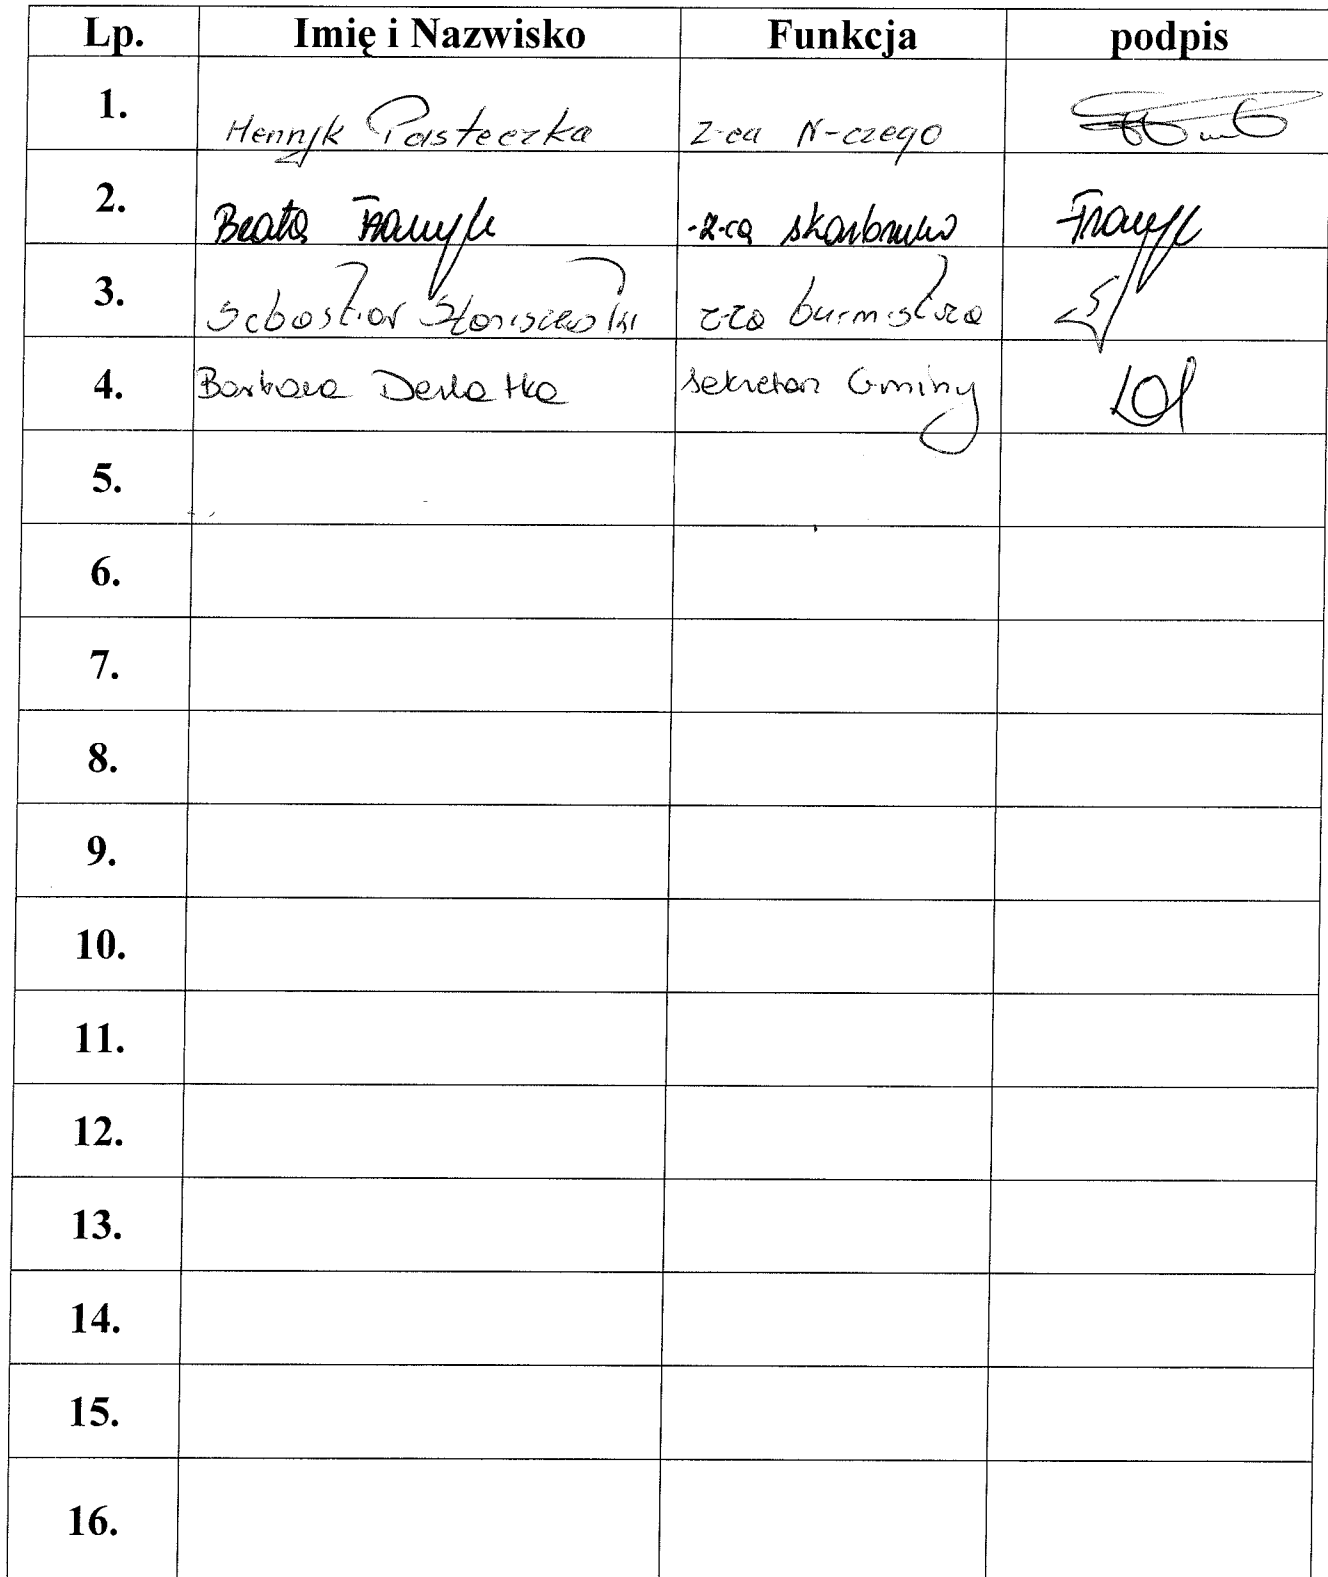 Lp. Imię i Nazwisko Funkcja podpis
1. Henryk Pasteczka Z-ca N-czego
2. Beata z-ca skarbnika
3. Sebastian Staniszewski z-ca burmistrza
4. Barbara Derlatka sekretarz Gminy
5.
6.
7.
8.
9.
10.
11.
12.
13.
14.
15.
16.